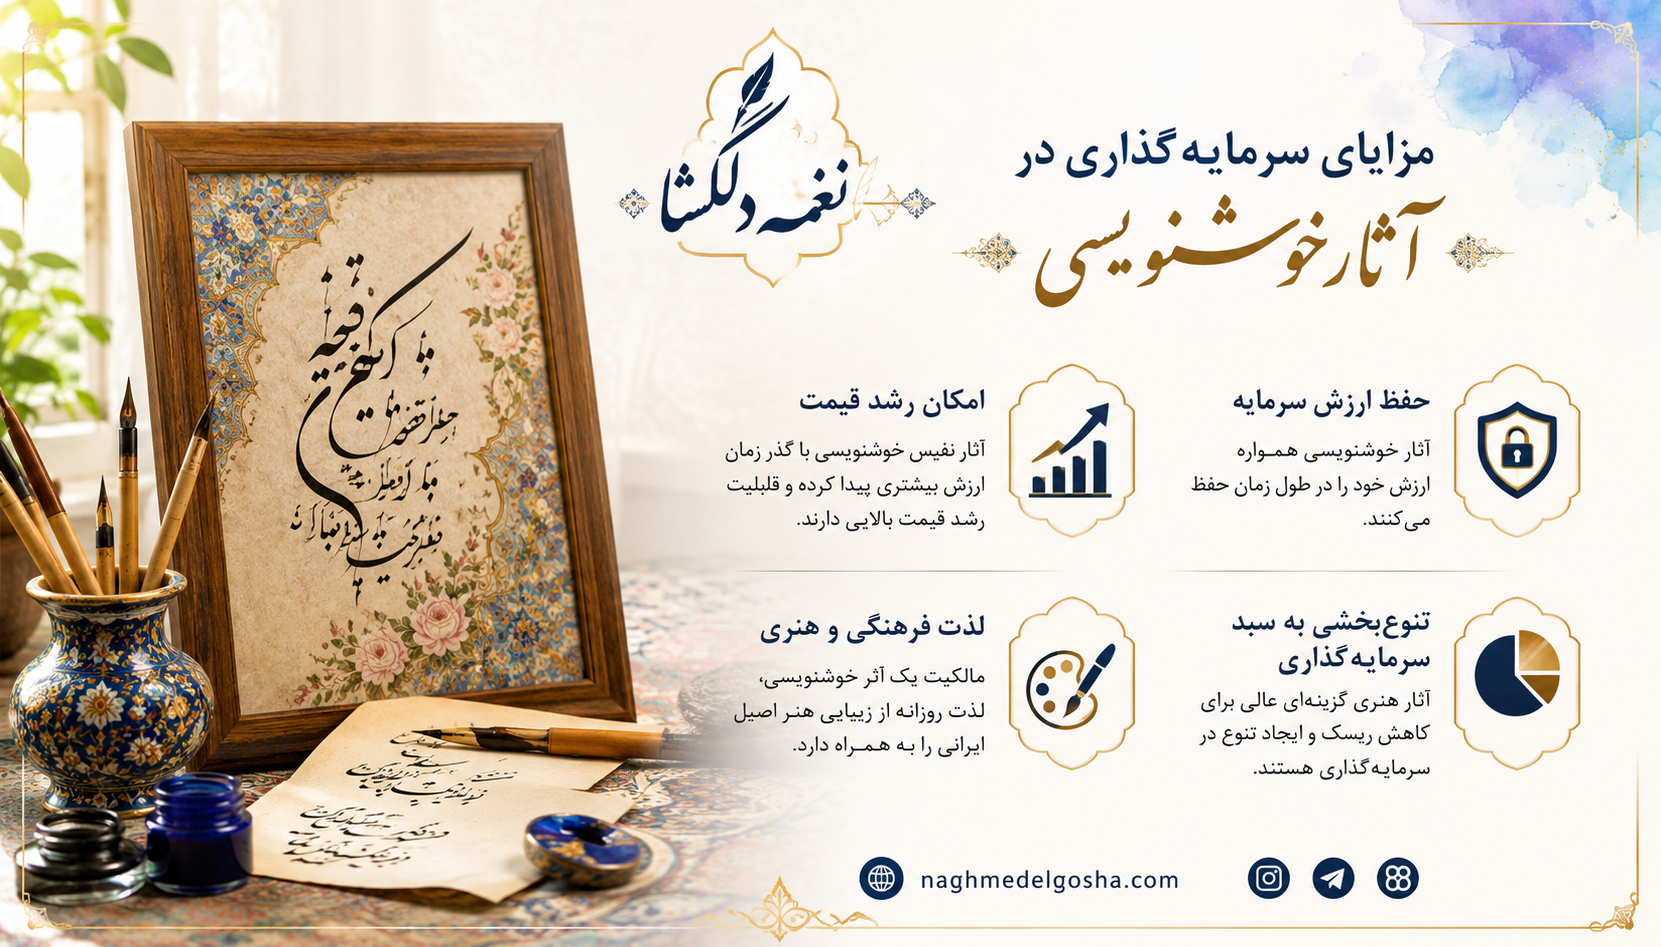 نغمه دلگشا
مزایای سرمایه‌گذاری در
آثار خوشنویسی
حفظ ارزش سرمایه
آثار خوشنویسی همـواره
ارزش خود را در طول زمان حفظ
می‌کنند.
امکان رشد قیمت
آثار نفیس خوشنویسی با گذر زمان
ارزش بیشتری پیدا کرده و قلبلیت
رشد قیمت بالایی دارند.
تنوع‌بخشی به سبد
سرمایه‌گذاری
آثار هنری گزینه‌ای عالی برای
کاهش ریسک و ایجاد تنوع در
سرمایه‌گذاری هستند.
لذت فرهنگی و هنری
مالکیت یک آثر خوشنویسی،
لذت روزانه از زیبایی هنر اصیل
ایرانی را به همـراه دارد.
naghmedelgosha.com